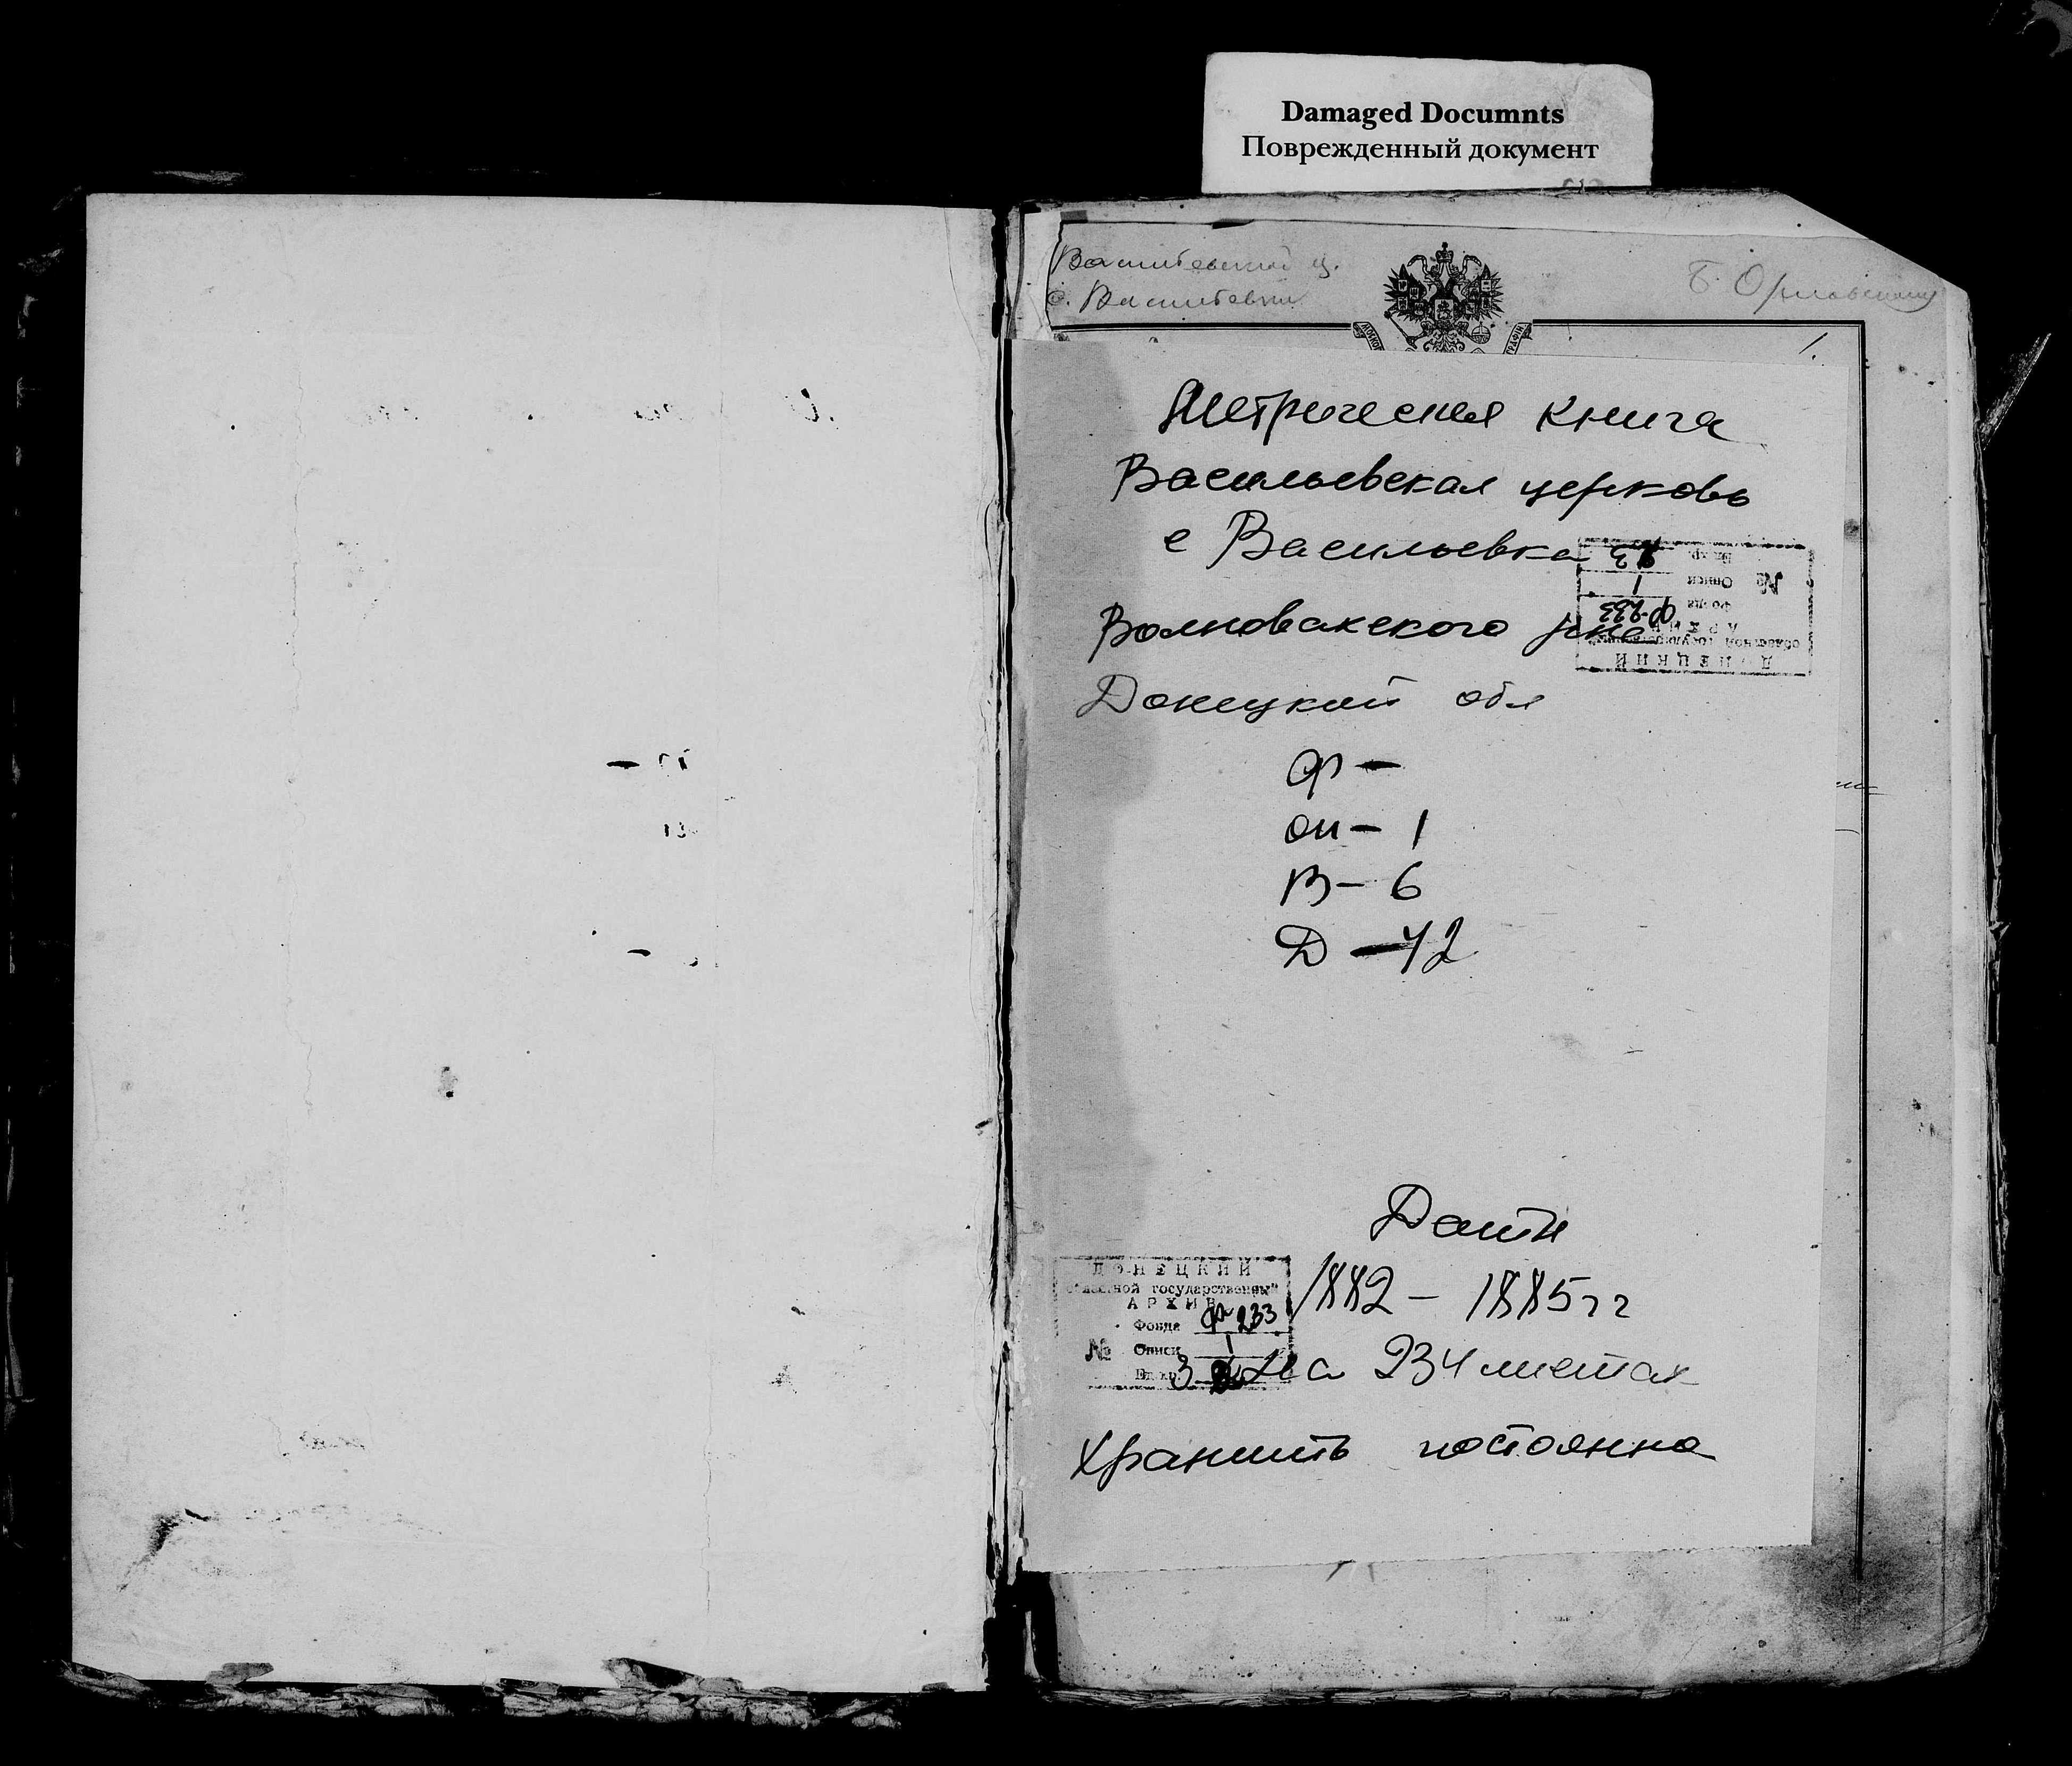 Damaged Documnts
Поврежденный документ
Васильевской ц.
с. Васильевки
Б. Орловскому
1.
Метрическая книга
Васильевская церковь
с Васильевка
Волновахского р-на
Донецкой обл
Ф —
оп — 1
В — 6
Д — 42
ДОНЕЦКИЙ
областной государственный
АРХИВ
Фонда Ф-233
Описи 1
№
Ед. хр. 3
Даты
1882 — 1885 гг
ДОНЕЦКИЙ
областной государственный
АРХИВ
Фонда Ф-233
№ Описи 1
Ед. хр. 3
На 234 листах
Хранить постоянно